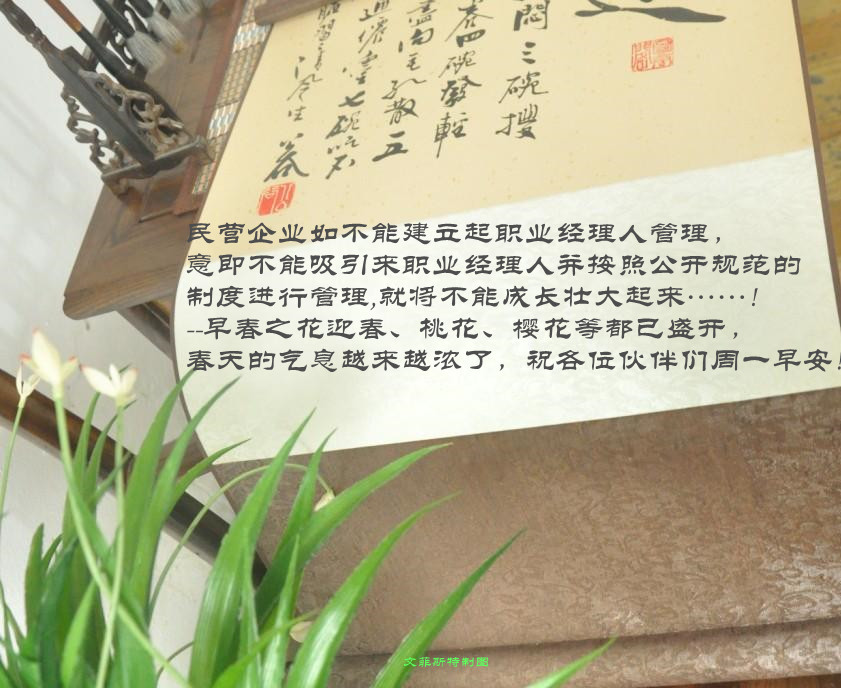 民营企业如不能建立起职业经理人管理，
意即不能吸引来职业经理人并按照公开规范的
制度进行管理,就将不能成长壮大起来……！
--早春之花迎春、桃花、樱花等都已盛开，
春天的气息越来越浓了，祝各位伙伴们周一早安！
悶三碗搜
四碗發輕
散五
七碗吃不
文菲斯特制图